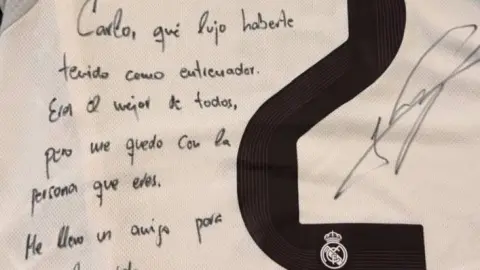 Carlo, qué lujo haberte
tenido como entrenador.
Eras el mejor de todos,
pero me quedo con la
persona que eres.
Me llevo un amigo para
2